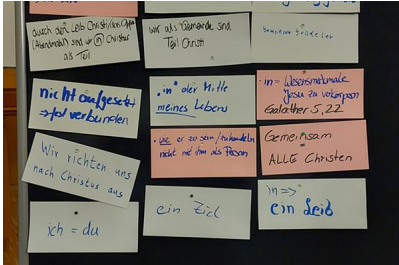 durch den Leib Christi/das Opfer
(Abendmahl) sind wir in Christus
als Teil
wir als Gemeinde sind
Teil Christi
nicht aufgesetzt
→ fest verbunden
"in" der Mitte
meines Lebens
• in = Wesensmerkmale
Jesu zu verkörpern
Galater 5,22
Wir richten uns
nach Christus aus
• wie er zu sein/zu handeln
nicht mit ihm als Person
Gemeinsam
=
ALLE Christen
ich = du
ein Ziel
in =>
ein Leib